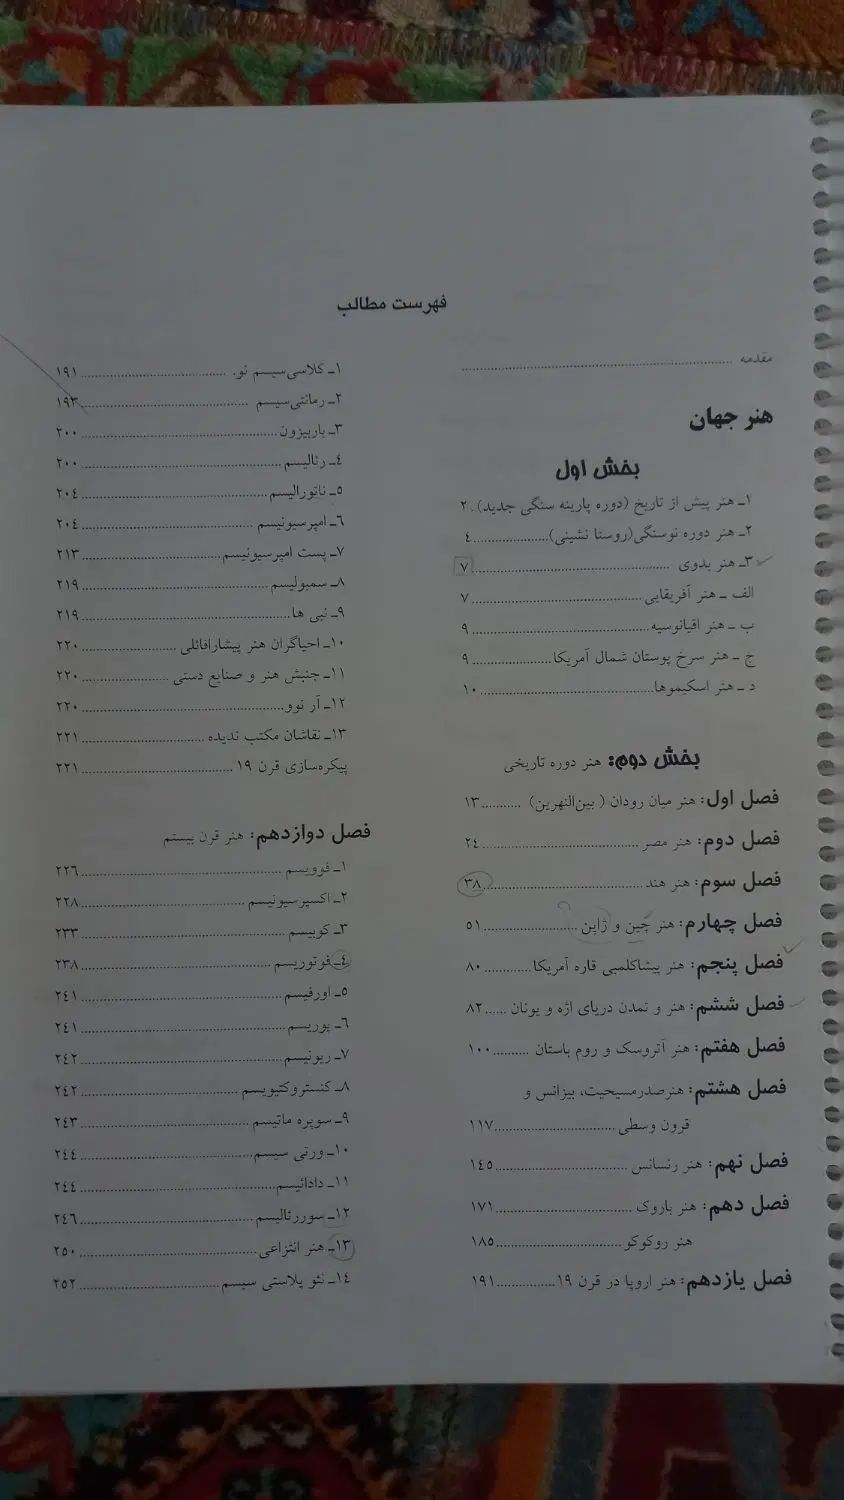 فهرست مطالب
مقدمه ........................................
هنر جهان
بخش اول
۱ـ هنر پیش از تاریخ (دوره پارینه سنگی جدید). ۲
۲ـ هنر دوره نوسنگی(روستا نشینی)................... ٤
۳ـ هنر بدوی ................................ ۷
الف ـ هنر آفریقایی ................................ ۷
ب ـ هنر اقیانوسیه ................................ ۹
ج ـ هنر سرخ پوستان شمال آمریکا................... ۹
د ـ هنر اسکیموها................................ ۱۰
بخش دوم: هنر دوره تاریخی
فصل اول: هنر میان رودان ( بین‌النهرین) .......... ۱۳
فصل دوم: هنر مصر ................................ ۲٤
فصل سوم: هنر هند ................................ ۳۸
فصل چهارم: هنر چین و ژاپن ........................ ۵۱
فصل پنجم: هنر پیشاکلمبی قاره آمریکا............ ۸۰
فصل ششم: هنر و تمدن دریای اژه و یونان ...... ۸۲
فصل هفتم: هنر آتروسک و روم باستان .......... ۱۰۰
فصل هشتم: هنرصدرمسیحیت، بیزانس و
قرون وسطی ................................ ۱۱۷
فصل نهم: هنر رنسانس ................................ ۱٤۵
فصل دهم: هنر باروک ................................ ۱۷۱
هنر روکوکو ................................ ۱۸۵
فصل یازدهم: هنر اروپا در قرن ۱۹............... ۱۹۱
۱ـ کلاسی‌سیسم نو. ................................ ۱۹۱
۲ـ رمانتی‌سیسم ................................ ۱۹۳
۳ـ باربیزون ................................ ۲۰۰
٤ـ رئالیسم ................................ ۲۰۰
۵ـ ناتورالیسم ................................ ۲۰٤
۶ـ امپرسیونیسم ................................ ۲۰٤
۷ـ پست امپرسیونیسم ................................ ۲۱۳
۸ـ سمبولیسم ................................ ۲۱۹
۹ـ نبی ها ................................ ۲۱۹
۱۰ـ احیاگران هنر پیشارافائلی ........................ ۲۲۰
۱۱ـ جنبش هنر و صنایع دستی ...................... ۲۲۰
۱۲ـ آر نوو ................................ ۲۲۰
۱۳ـ نقاشان مکتب ندیده ................................ ۲۲۱
پیکره‌سازی قرن ۱۹ ................................ ۲۲۱
فصل دوازدهم: هنر قرن بیستم
۱ـ فوویسم ................................ ۲۲۶
۲ـ اکسپرسیونیسم ................................ ۲۲۸
۳ـ کوبیسم ................................ ۲۳۳
٤ـ فوتوریسم ................................ ۲۳۸
۵ـ اورفیسم ................................ ۲٤۱
۶ـ پوریسم ................................ ۲٤۱
۷ـ ریونیسم ................................ ۲٤۲
۸ـ کنستروکتیویسم ................................ ۲٤۲
۹ـ سوپره ماتیسم ................................ ۲٤۳
۱۰ـ ورتی سیسم ................................ ۲٤٤
۱۱ـ دادائیسم ................................ ۲٤٤
۱۲ـ سوررئالیسم ................................ ۲٤۶
۱۳ـ هنر انتزاعی ................................ ۲۵۰
۱٤ـ نئو پلاستی سیسم ................................ ۲۵۲